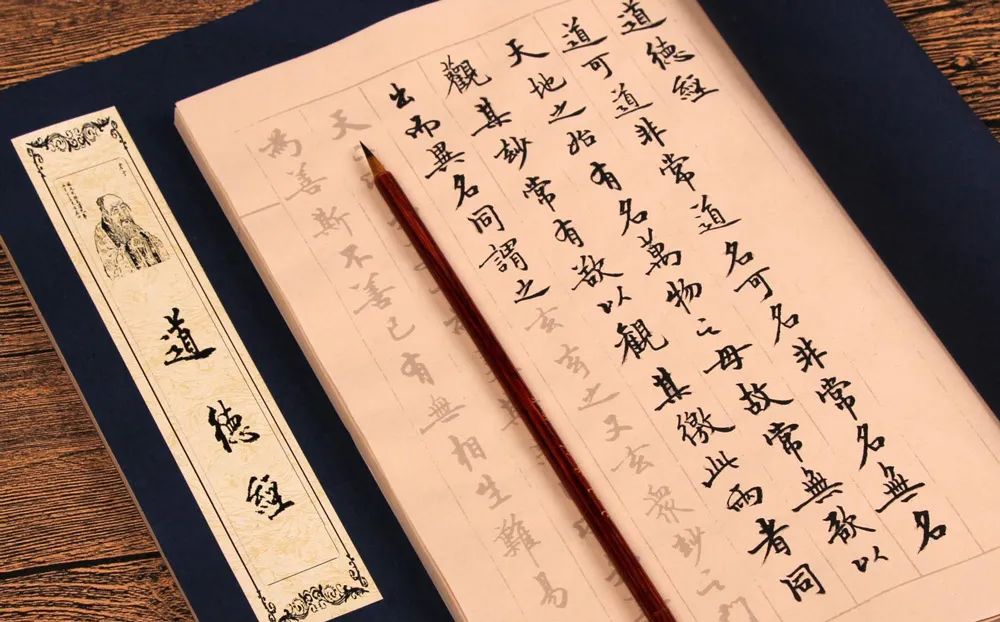 道德經
道可道非常道名可名非常名無名
天地之始有名萬物之母故常無欲以
觀其妙常有欲以觀其徼此兩者同
出而異名同謂之玄玄之又玄眾妙之門
天
為善斯不善已有無相生難易
道德經